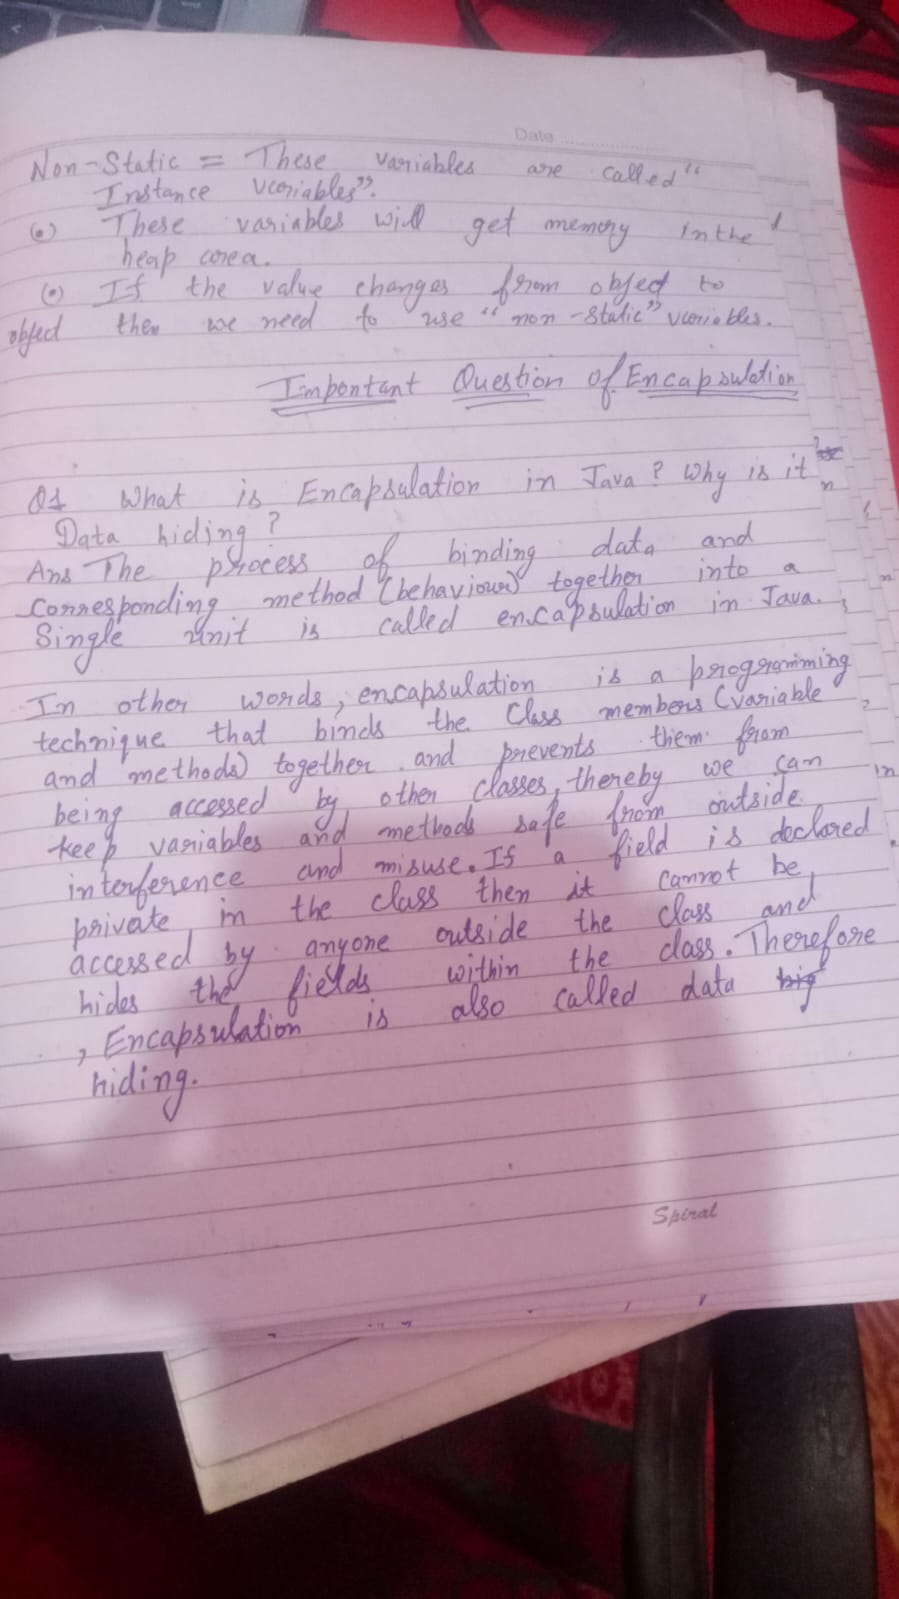 Date
Non-Static = These variables are called "
Instance variables".
(•) These variables will get memory in the
heap area.
(•) If the value changes from object to
object then we need to use "non-static" variables.
Important Question of Encapsulation
Q1 What is Encapsulation in Java? Why is it
Data hiding?
Ans The process of binding data and
corresponding method (behaviour) together into a
Single unit is called encapsulation in Java.
In other words, encapsulation is a programming
technique that binds the Class members (variable
and methods) together and prevents them from
being accessed by other classes, thereby we can
keep variables and methods safe from outside
interference and misuse. If a field is declared
private in the class then it cannot be
accessed by anyone outside the class and
hides the fields within the class. Therefore
, Encapsulation is also called data
hiding.
Spiral